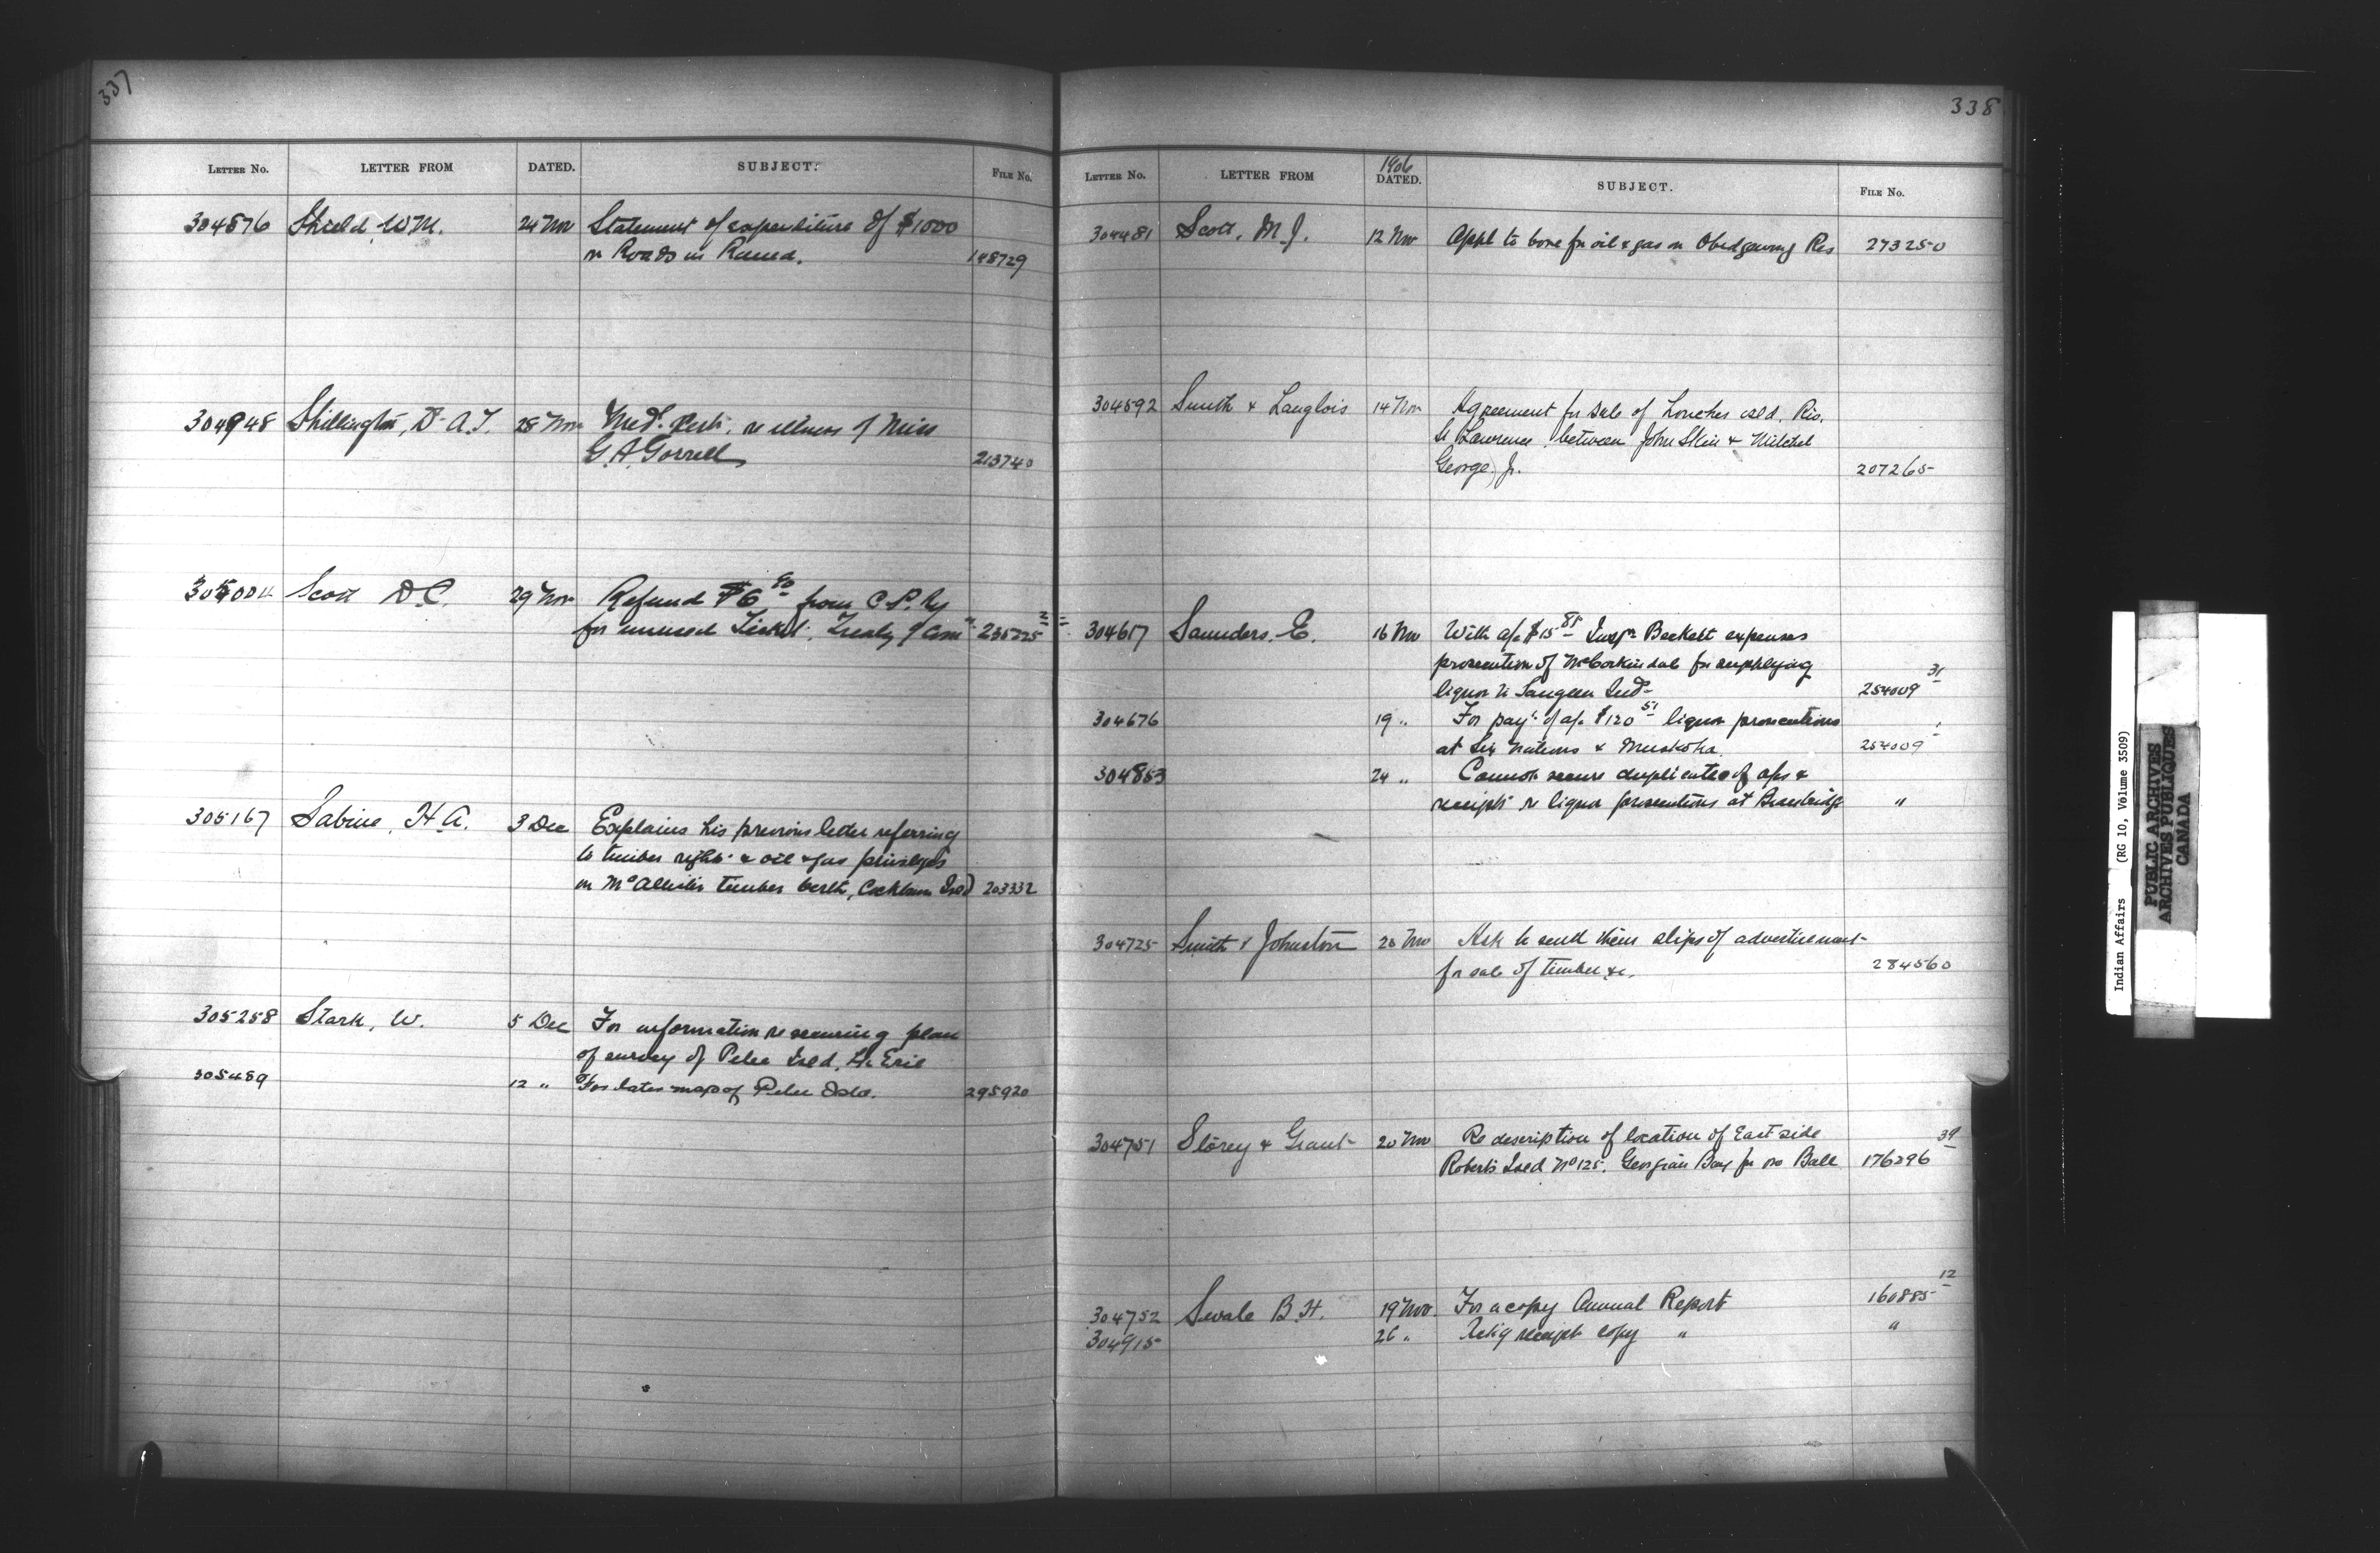 337
LETTER No. LETTER FROM DATED. SUBJECT. FILE No.
304876 Shield, W.M. 24 Nov Statement of expenditure of $1000
on Roads in Rama. 148729
304948 Shillington, Dr A.T. 28 Nov Med. Certi. re illness of Miss
G.A. Gorrell 213740
305004 Scott D.C. 29 Nov Refund $6 40 from C.P. Ry
for unused Ticket, Treaty 9 Comn 235225 2
305167 Sabine, H.A. 3 Dec Explains his previous letter referring
to timber rights & oil & gas privileges
on timber berth, Cockburn Isld 203332
305258 Stark, W. 5 Dec For information re securing plan
of survey of Pelee Isld. Lk Erie
305489 12 " For later map of Pelee Isld. 295920
338
1906
LETTER No. LETTER FROM DATED. SUBJECT. FILE No.
304481 Scott, M.J. 12 Nov Appl to bore for oil & gas on Res 273250
304592 Smith & Langlois 14 Nov Agreement for sale of Isld. Riv.
St Lawrence, between John & Mitchel
George Jr. 207265
304617 Saunders. E. 16 Nov With a/c $15 85 Inspr Beckett expenses
prosecution of McCorkindale for supplying
liquor to Saugeen Inds 254009 31
304676 19 " For payt of a/c $120 51 liquor prosecutions
at Six Nations & Muskoka. 254009
304853 24 " Cannot secure duplicates of a/cs &
receipts re liquor prosecutions at Bracebridge "
304725 Smith & Johnston 20 Nov Ask to send them slips of advertisement
for sale of timber &c. 284560
304751 Storey & Grant 20 Nov Re description of location of East side
Roberts Isld No 125. Georgian Bay for Ball 176296 39
304752 Swale B.H. 19 Nov. For a copy Annual Report 160885 12
304915 26 " Ackg receipt copy " "
Indian Affairs (RG 10, Volume 3509)
PUBLIC ARCHIVES
ARCHIVES PUBLIQUES
CANADA